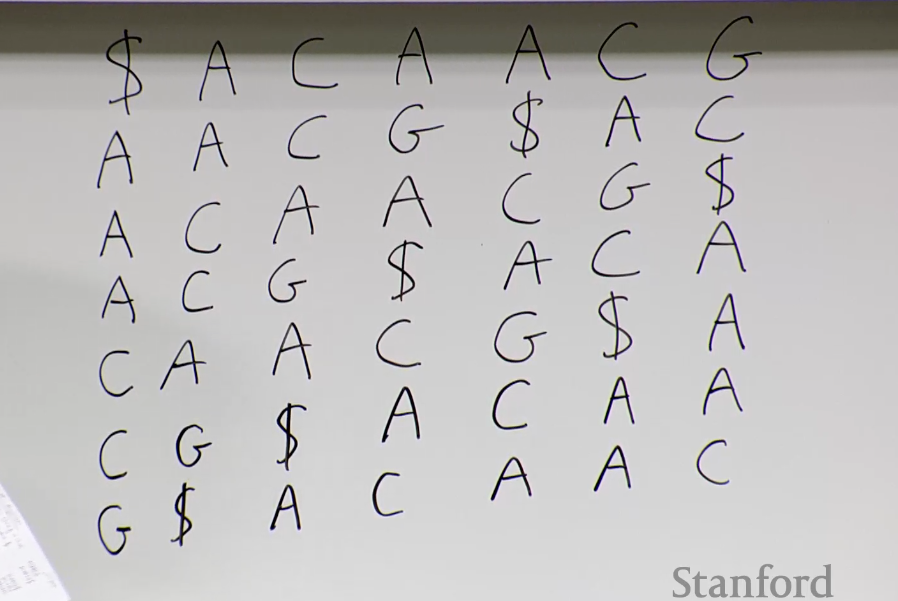 $ A C A A C G
A A C G $ A C
A C A A C G $
A C G $ A C A
C A A C G $ A
C G $ A C A A
G $ A C A A C
Stanford